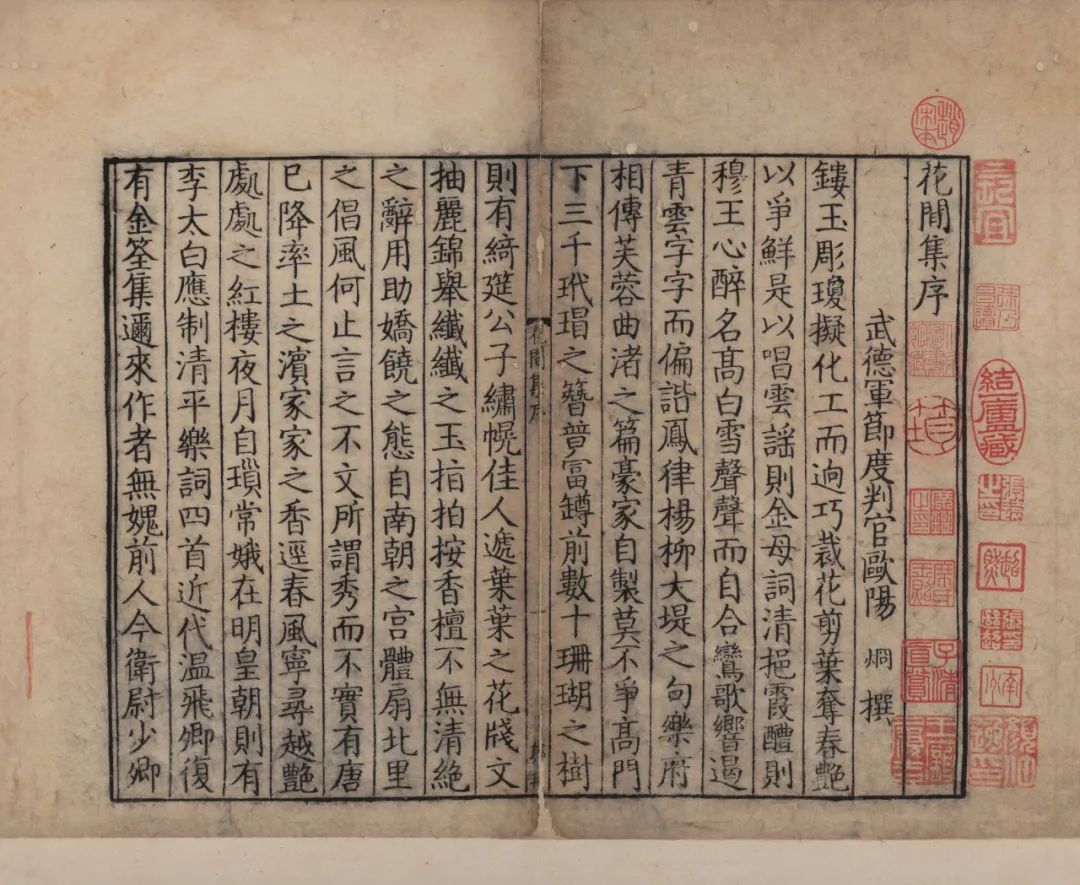 花閒集序
武德軍節度判官歐陽 烱 撰
鏤玉彫瓊擬化工而逈巧裁花剪葉奪春艷
以爭鮮是以唱雲謡則金母詞清挹霞醴則
穆王心醉名髙白雪聲聲而自合鸞歌響遏
青雲字字而偏諧鳳律楊柳大堤之句樂府
相傳芙蓉曲渚之篇豪家自製莫不爭髙門
下三千玳瑁之簪競富罇前數十珊瑚之樹
則有綺筵公子繡幌佳人遞葉葉之花牋文
抽麗錦舉纖纖之玉指拍按香檀不無清絶
之辭用助嬌饒之態自南朝之宫體扇北里
之倡風何止言之不文所謂秀而不實有唐
巳降率土之濵家家之香逕春風寧尋越艷
處處之紅樓夜月自瑣常娥在明皇朝則有
李太白應制清平樂詞四首近代温飛卿復
有金筌集邇來作者無媿前人今衛尉少卿
花閒集序
趙宋本
結廬藏